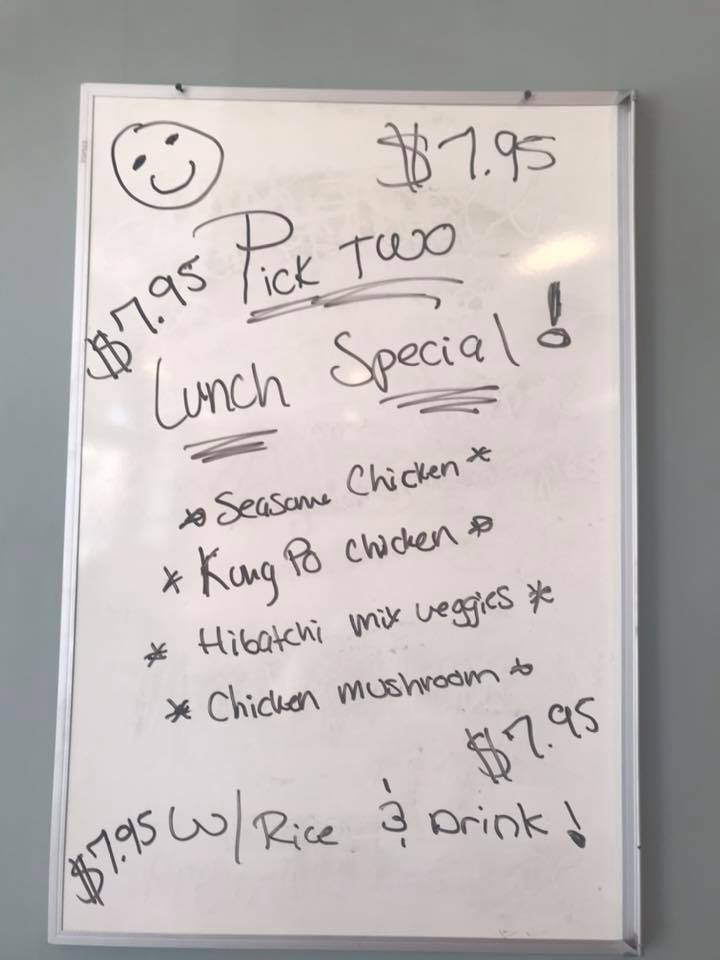 $7.95
Pick Two
$7.95
Lunch Special!
* Seasame Chicken *
* Kung Po chicken *
* Hibatchi mix veggies *
* Chicken mushroom *
$7.95
$7.95 W/Rice & Drink!